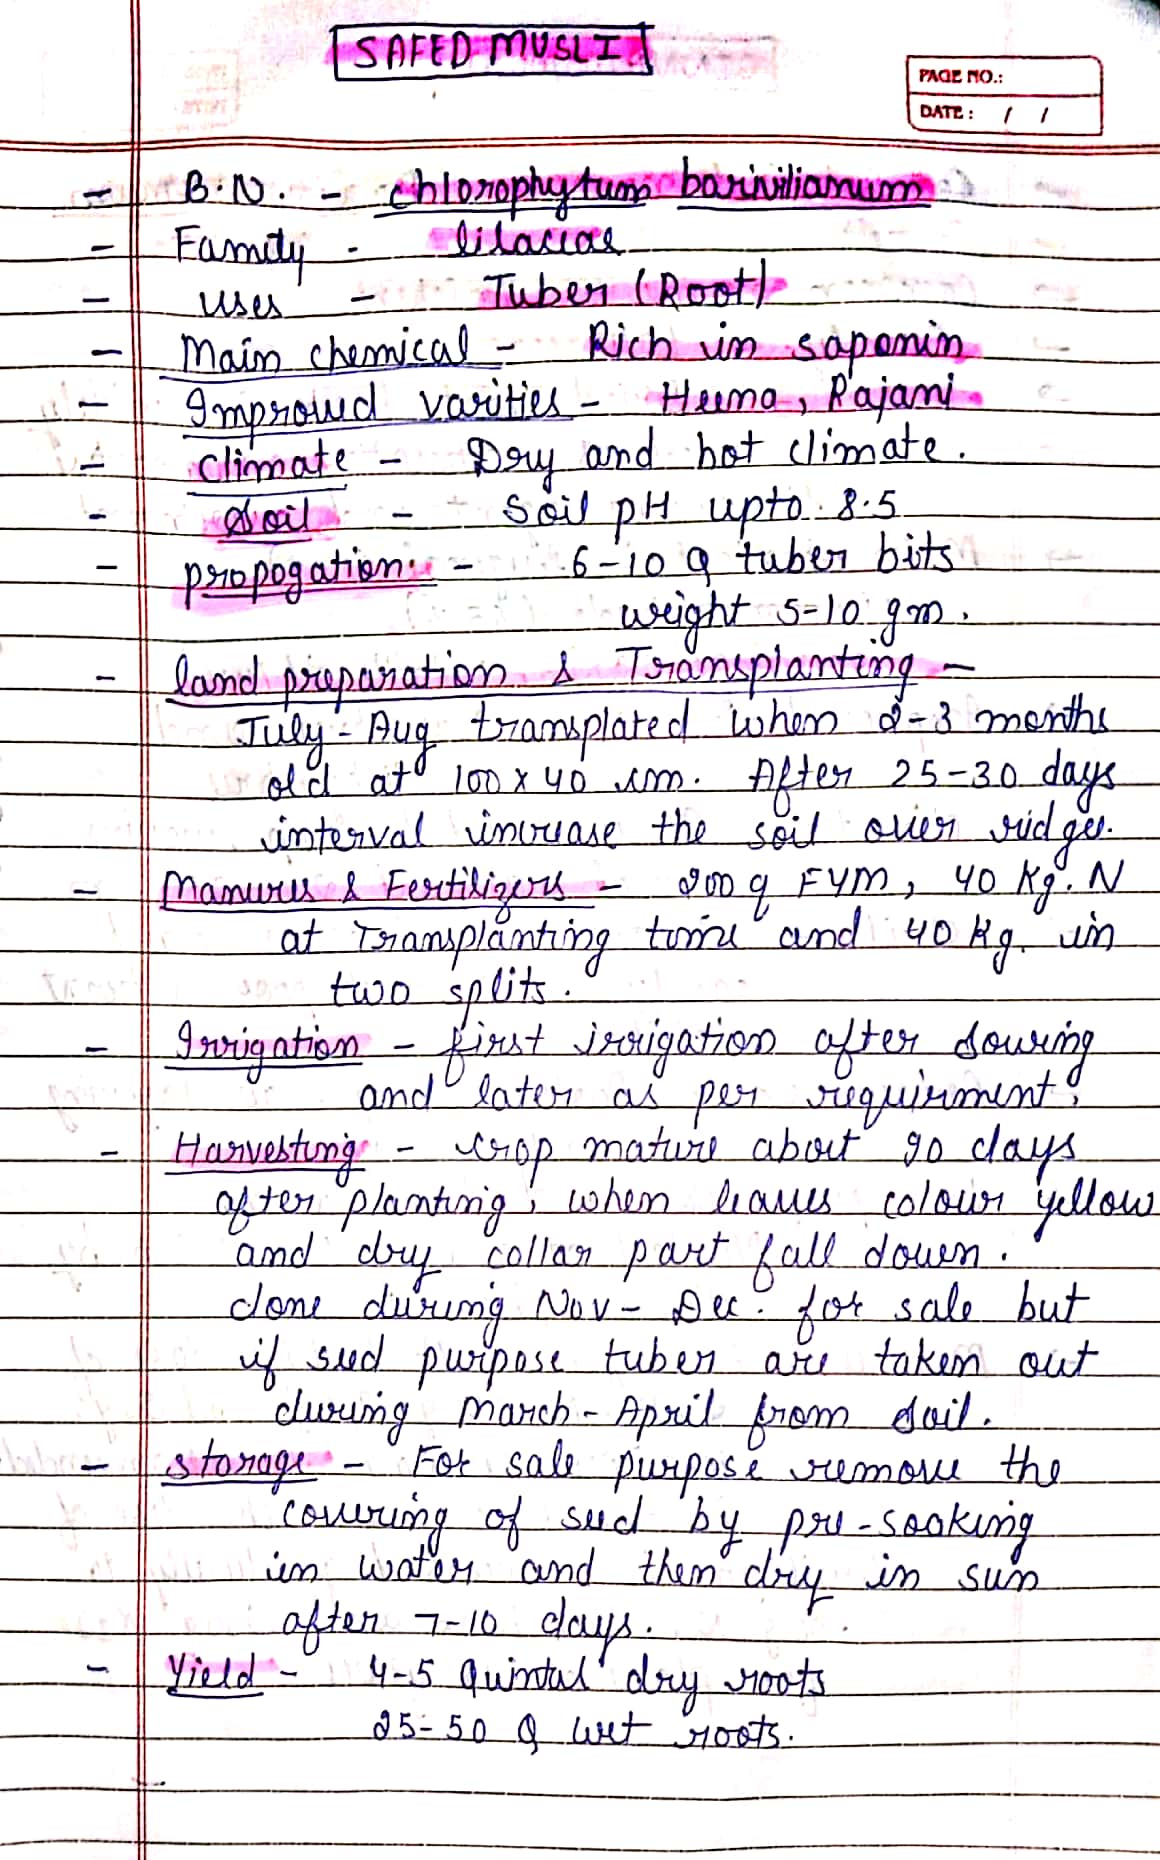 SAFED MUSLI
PAGE NO.:
DATE: / /
- B.N. - chlorophytum borivilianum
- Family - liliaciae
- uses - Tuber (Root)
- Main chemical - Rich in saponin
- Improved varities - Heema, Rajani
- climate - Dry and hot climate.
- Soil - Soil pH upto 8.5
- propogation - 6-10 q tuber bits
weight 5-10 gm.
- land preparation & Transplanting -
July - Aug transplated when 2-3 months
old at 100 x 40 cm. After 25-30 days
interval increase the soil over ridges.
- Manures & Fertilizers - 200 q FYM, 40 Kg. N
at Transplanting time and 40 Kg. in
two splits.
- Irrigation - first irrigation after sowing
and later as per requirment.
- Harvesting - crop mature about 90 days
after planting, when leaves colour yellow
and dry collar part fall down.
done during Nov - Dec. for sale but
if seed purpose tuber are taken out
during March - April from soil.
- storage - For sale purpose remove the
covering of seed by pre-soaking
in water and then dry in sun
after 7-10 days.
- Yield - 4-5 Quintal dry roots
25-50 Q wet roots.